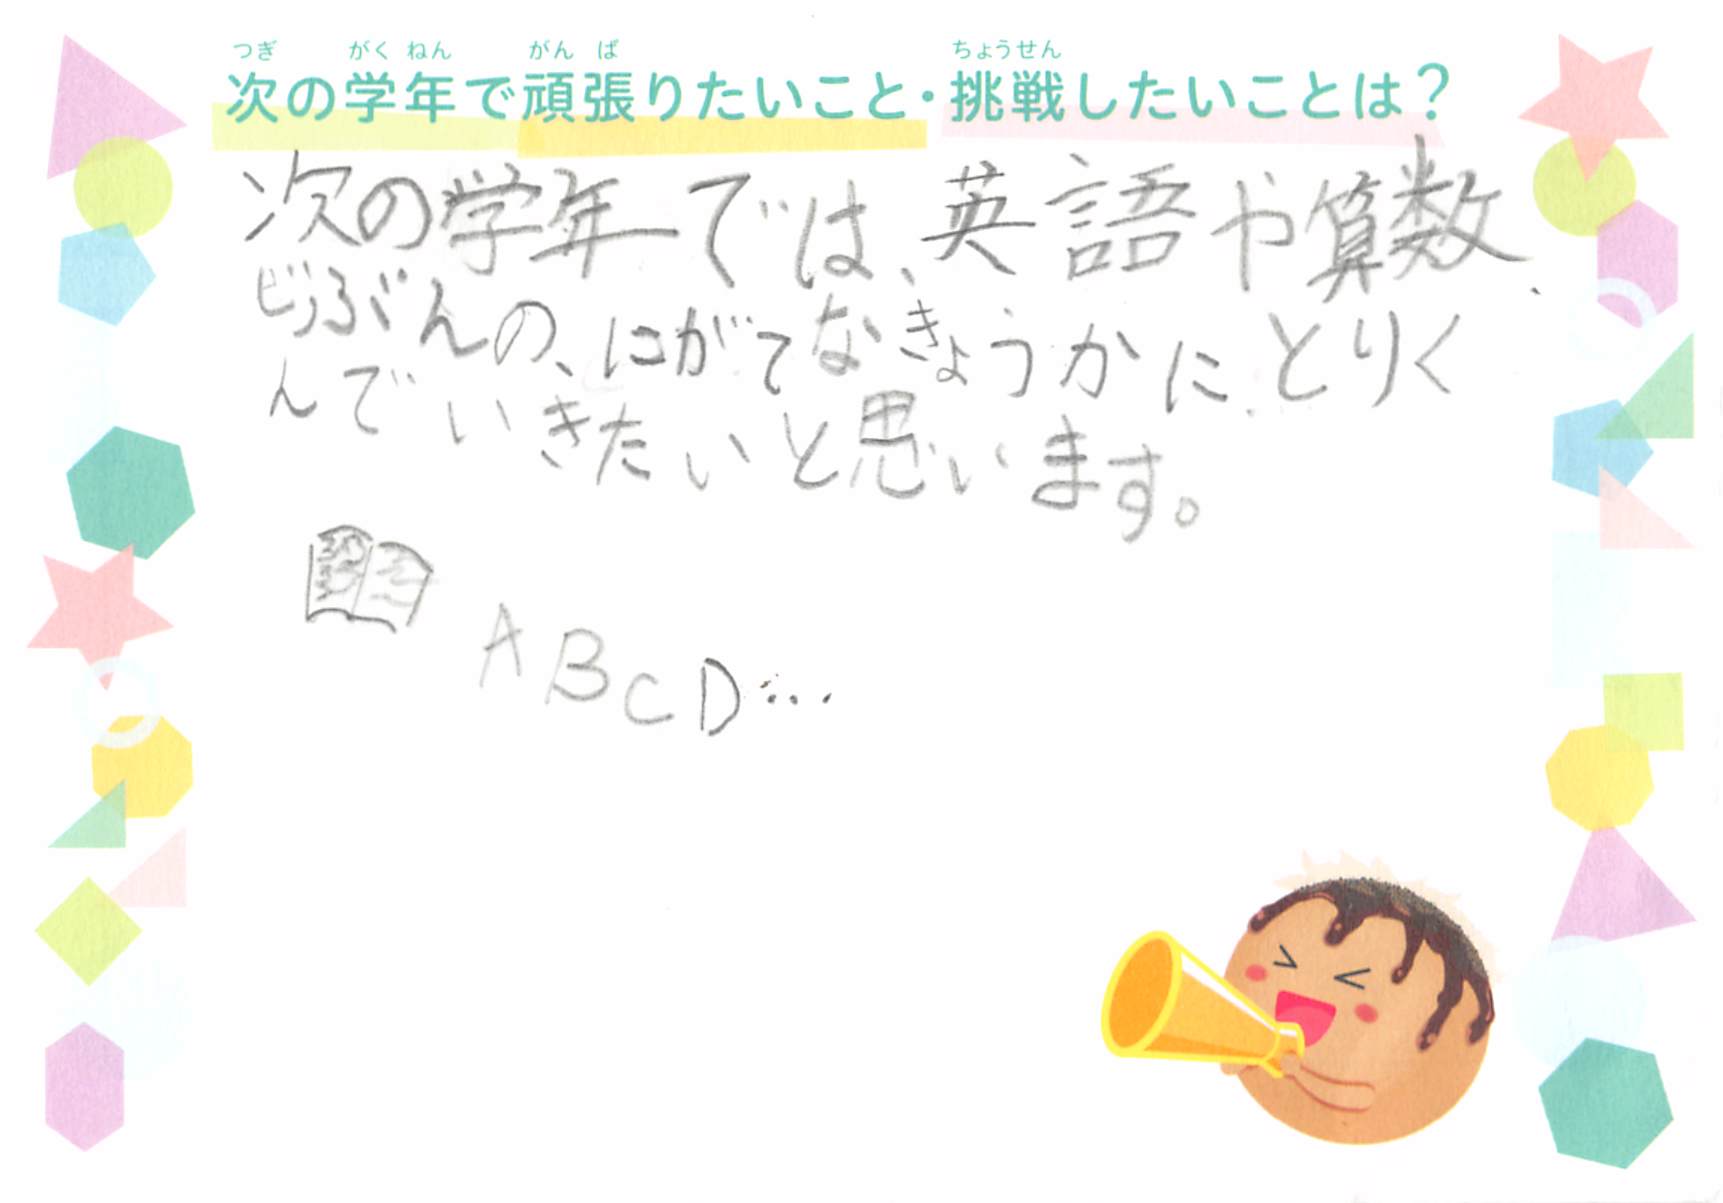 つぎ がく ねん がん ば ちょうせん
次の学年で頑張りたいこと・挑戦したいことは？
次の学年では、英語や算数、
じぶんの、にがてなきょうかに、とりく
んでいきたいと思います。
ABCD…